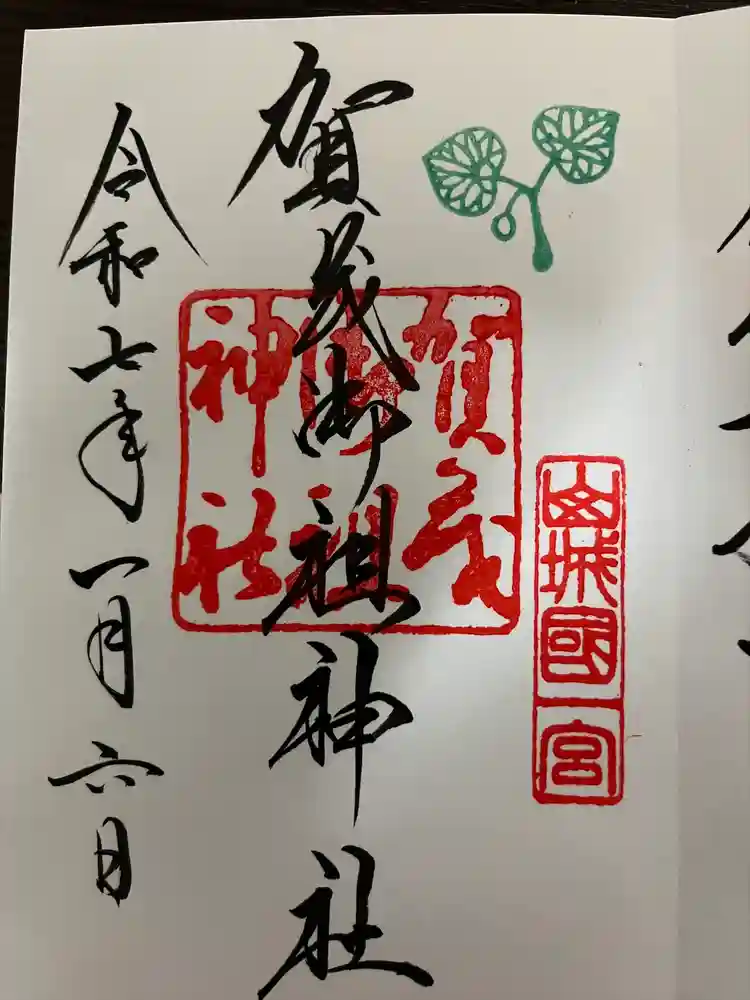 山城國一宮
賀茂御祖神社
賀茂御祖神社
令和七年一月六日